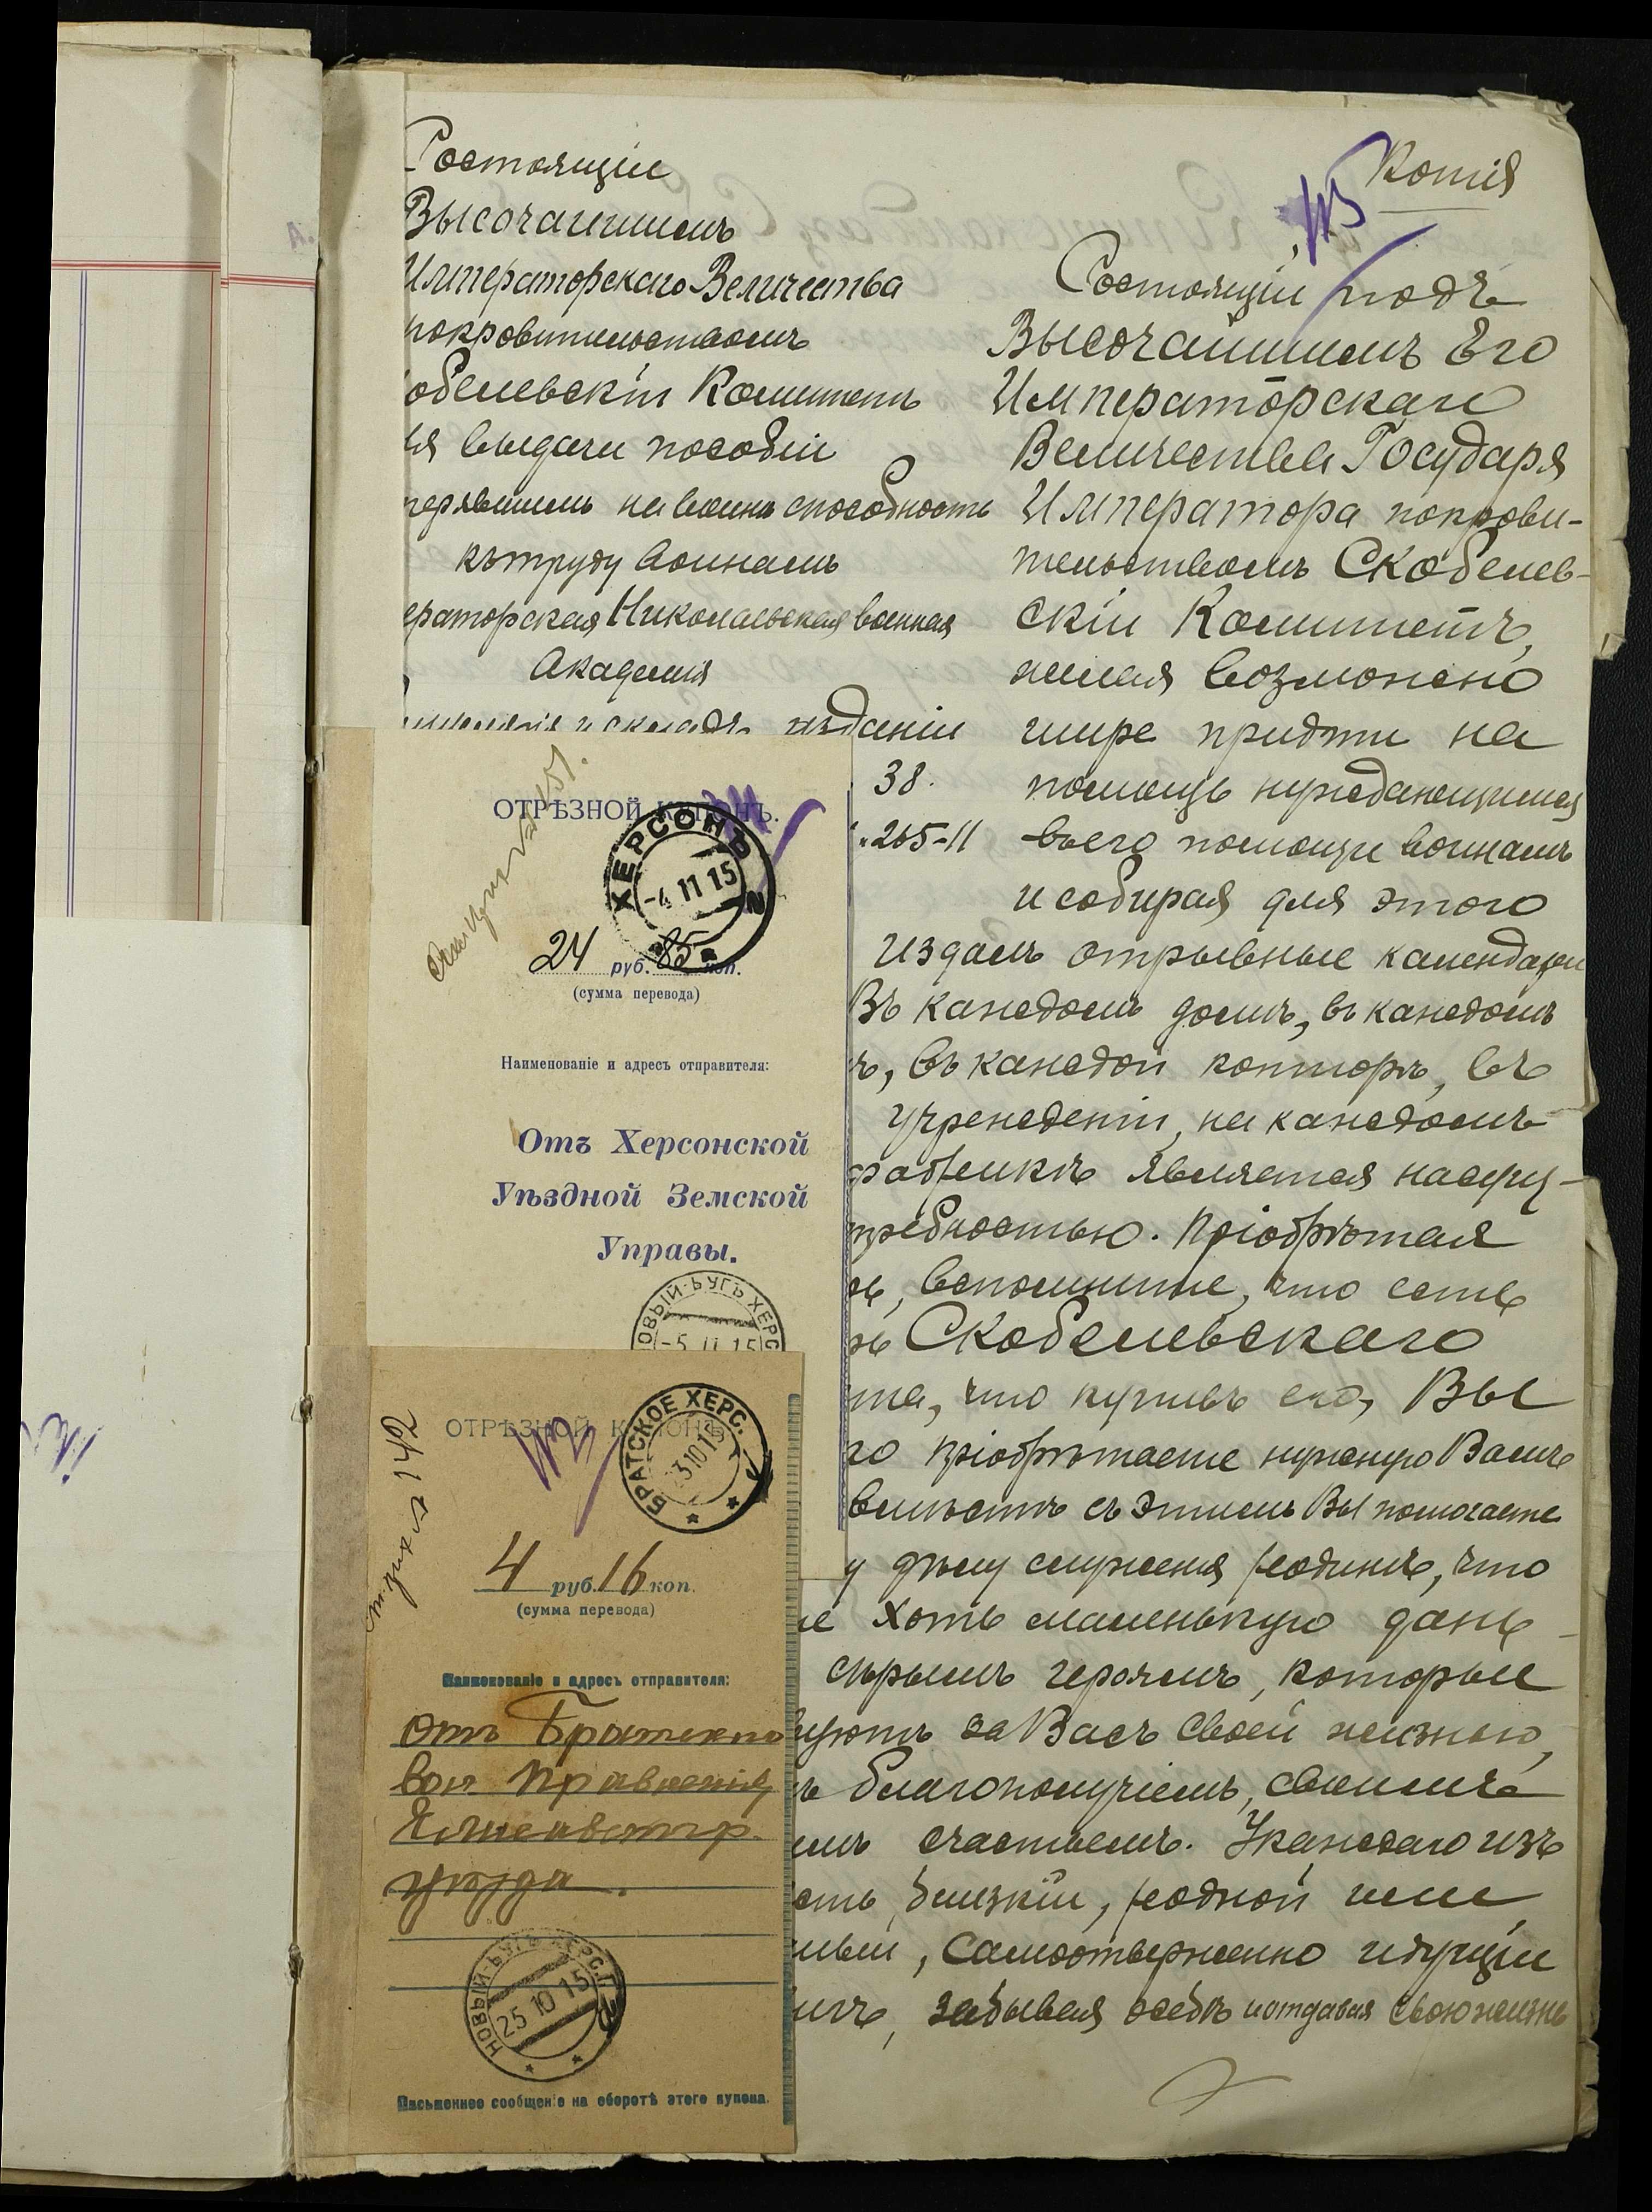 Копія
Состоящій
Высочайшимъ
Императорскаго Величества
покровительствомъ
обелевскій Комитетъ
ля выдачи пособій
терявшимъ на войнѣ способность
къ труду воинамъ
ераторская Николаевская военная
Академія
и складъ изданій
38.
265-11
Состоящій подъ
Высочайшимъ Его
Императорскаго
Величества Государя
Императора покрови-
тельствомъ Скобелев-
скій Комитетъ,
желая возможно
шире придти на
помощь нуждающимся
въ его помощи воинамъ
и собирая для этого
издалъ отрывные календари
Въ каждомъ домѣ, въ каждомъ
ѣ, въ каждой конторѣ, въ
учрежденіи, на каждомъ
фабрикѣ является насущ-
требностью. Пріобрѣтая
ь, вспомните, что есть
рь Скобелевскаго
та, что купивъ его, Вы
го пріобрѣтаете нужную Вамъ
вмѣстѣ съ этимъ Вы помогаете
у дѣлу служенія родинѣ, что
е хоть маленькую дань
сѣрымъ героямъ, которые
уютъ за Васъ своей жизнью,
ъ благополучіемъ, своимъ
имъ счастьемъ. У каждаго изъ
сть близкій, родной или
мый, самоотверженно идущій
забывая о себѣ и отдавая свою жизнь
ОТРѢЗНОЙ КУПОНЪ.
ХЕРСОНЪ
-4 11 15
24 руб. 85 коп.
(сумма перевода)
Наименованіе и адресъ отправителя:
Отъ Херсонской
Уѣздной Земской
Управы.
НОВЫЙ-БУГЪ ХЕРС
-5 11 15
ОТРѢЗНОЙ КУПОНЪ
БРАТСКОЕ ХЕРС.
23 10 15
142
4 руб. 16 коп.
(сумма перевода)
Наименованіе и адресъ отправителя:
отъ Братскаго
вол. Правленія
Елисаветгр.
уѣзда.
НОВЫЙ-БУГЪ ХЕРС.Г.
25 10 15
Письменное сообщеніе на оборотѣ этого купона.